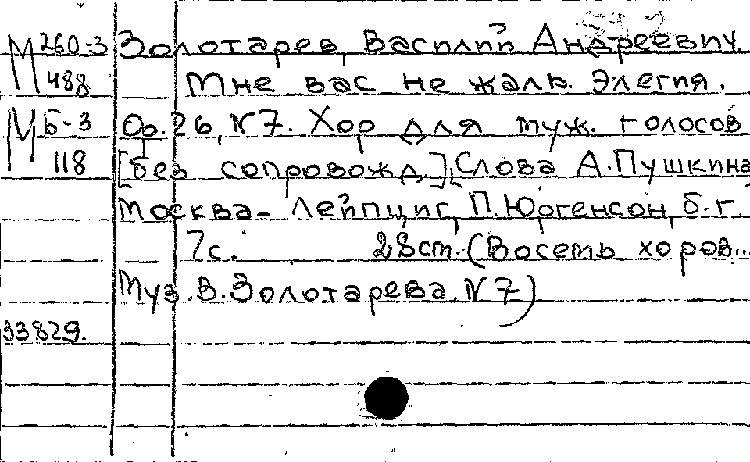 М 260-3 Золотарев, Василий Андреевич.
488 Мне вас не жаль. Элегия.
М Б-3 Ор.26, N7. Хор для муж. голосов
118 [без сопровожд.] Слова А.Пушкина
Москва - Лейпциг, П.Юргенсон, б.г.
7с. 28см. (Восемь хоров...
Муз. В.Золотарева. N7)
33829.